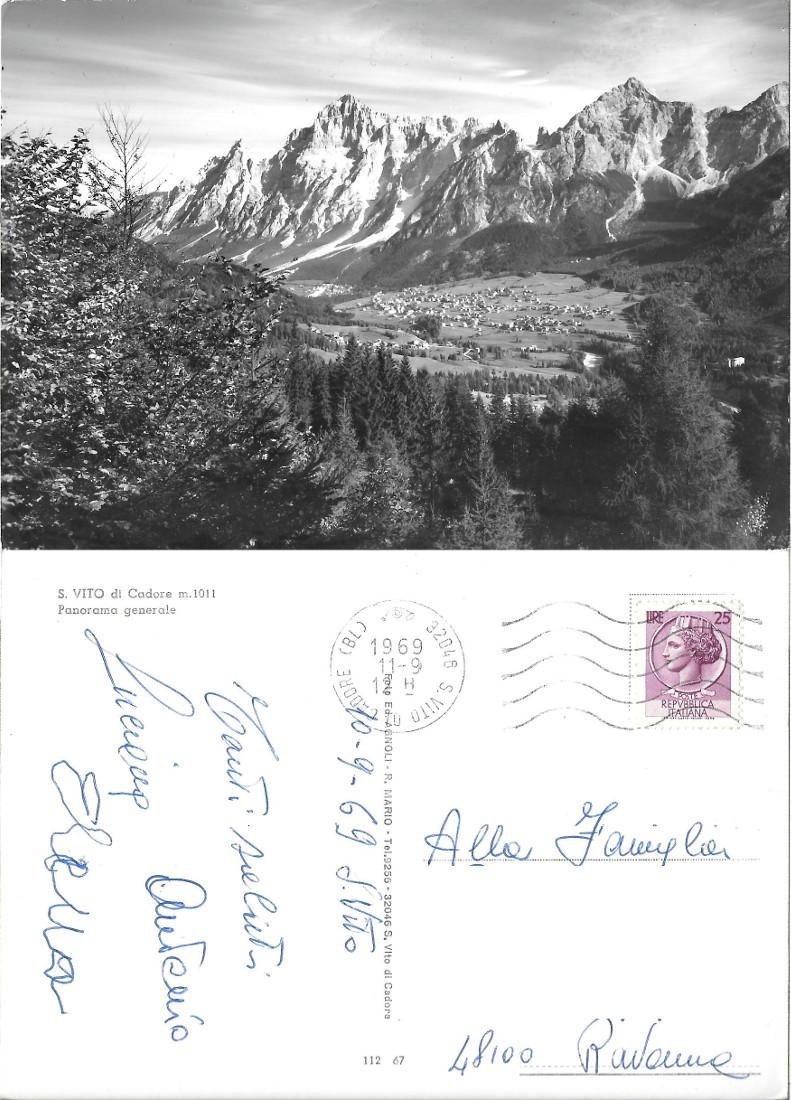 S. VITO di Cadore m.1011
Panorama generale
32046 S. VITO
CADORE (BL)
1969
11-9
LIRE 25
POSTE
REPVBBLICA
ITALIANA
10-9-69 S. Vito
Tanti saluti
Luciana
Antonio
Foto Ed. AGNOLI - R. MARIO - Tel.9256 - 32046 S. Vito di Cadora
Alla Famiglia
48100 Ravenna
112 67